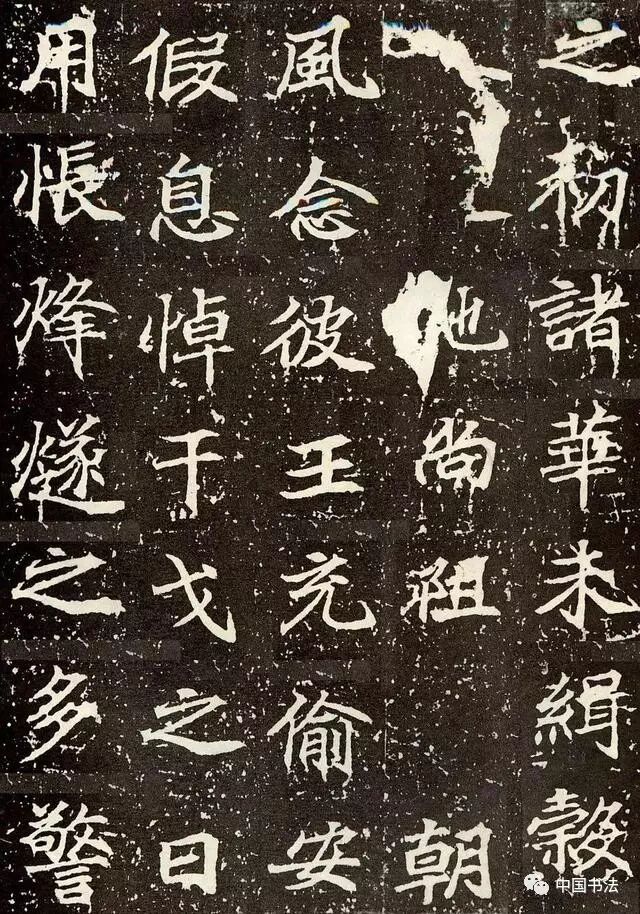 之初諸華未緝穀
地尚阻 朝
風念彼王充偷安
假息悼干戈之日
用悵烽燧之多警
中国书法